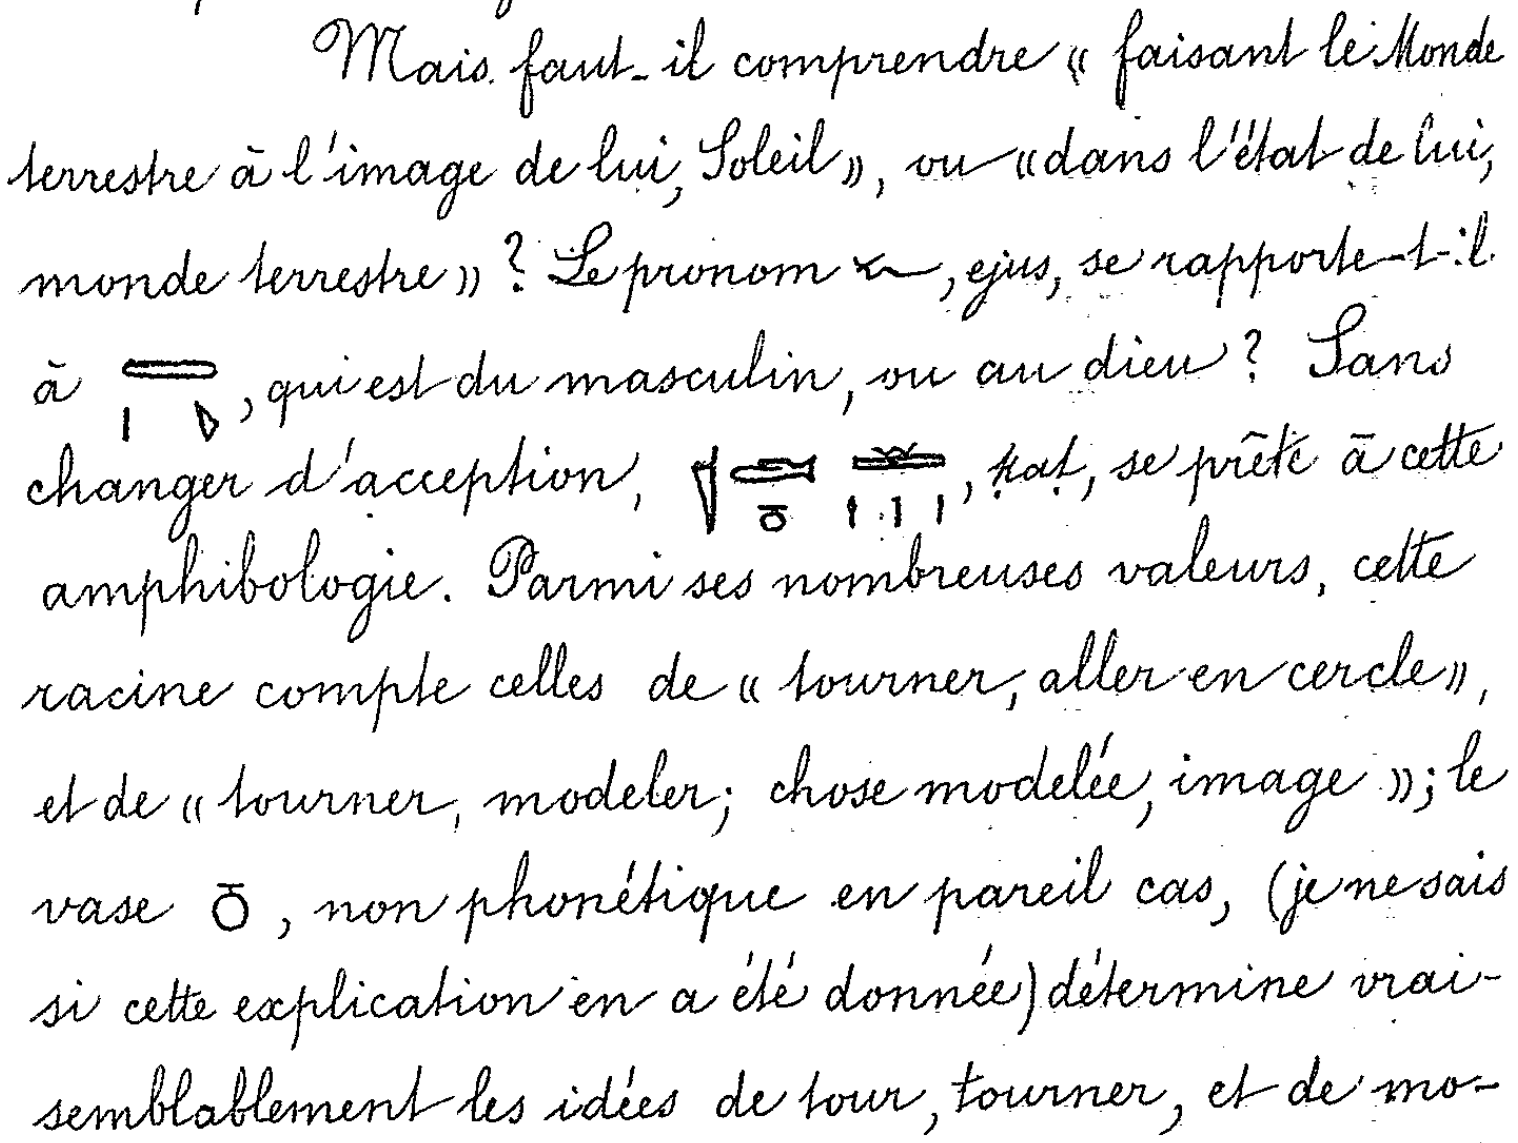 Mais faut-il comprendre « faisant le Monde
terrestre à l'image de lui, Soleil », ou « dans l'état de lui,
monde terrestre » ? Le pronom 𓆑, ejus, se rapporte-t-il
à 𓇾, qui est du masculin, ou au dieu ? Sans
changer d'acception, ḳaṭ, se prête à cette
amphibologie. Parmi ses nombreuses valeurs, cette
racine compte celles de « tourner, aller en cercle »,
et de « tourner, modeler ; chose modelée, image » ; le
vase 𓏌, non phonétique en pareil cas, (je ne sais
si cette explication en a été donnée) détermine vrai-
semblablement les idées de tour, tourner, et de mo-